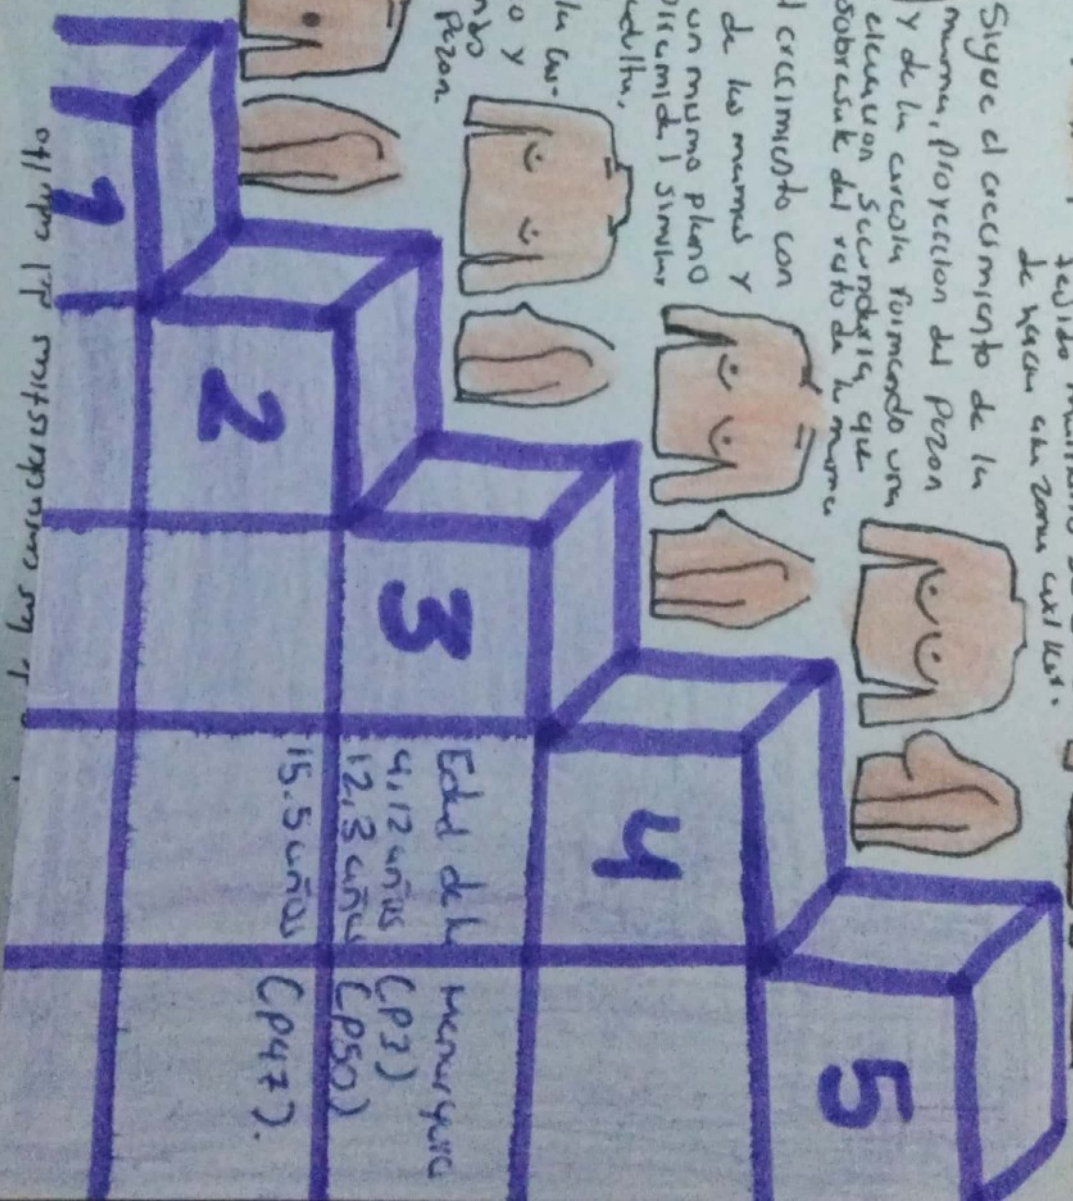 Sigue el crecimiento de la
mama, proyeccion del pezon
y de la areola formando una
elevacion secundaria que
sobresale del resto de la mama
crecimiento con
de las mamas y
un mismo plano
similar
adulta.
la are-
o y
ndo
Pezon.
5
4
3
2
1
Edad de la menarquia
9,12 años (P3)
12,3 años (P50)
15.5 años (P97).
las caracteristicas del adulto